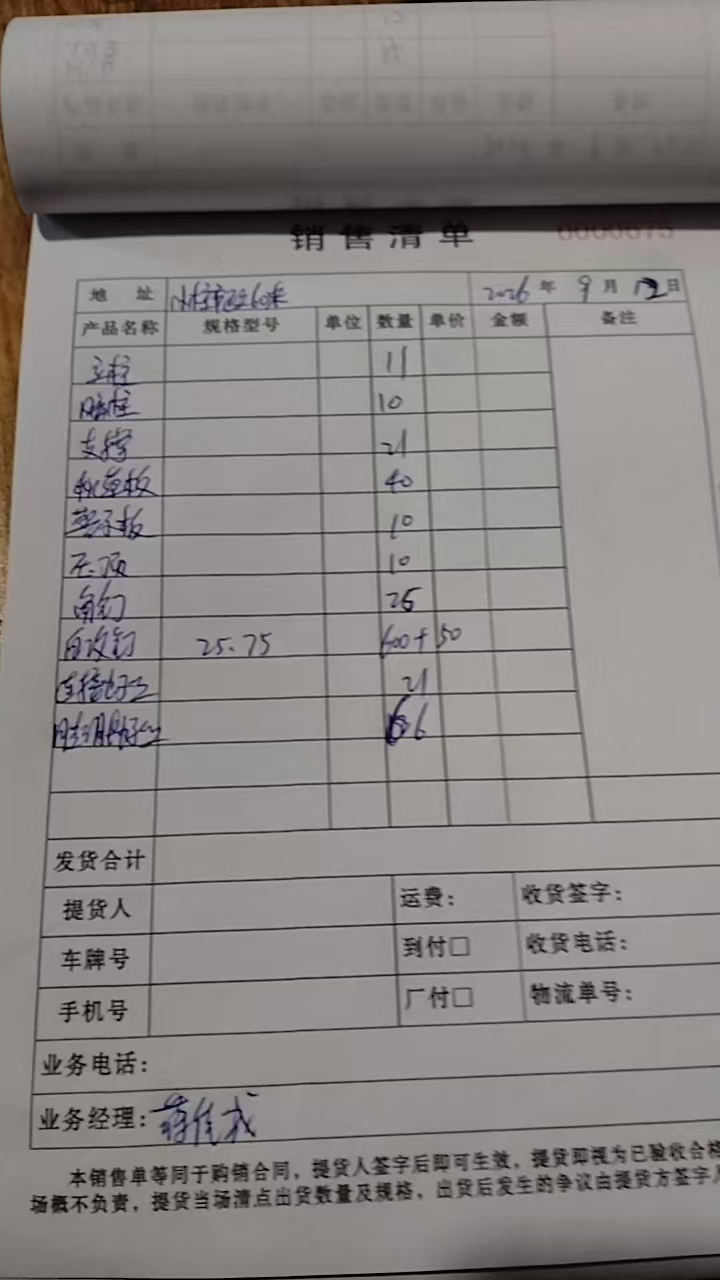 销售清单 0000075
地 址 60米 2026年9月12日
产品名称 规格型号 单位 数量 单价 金额 备注
立柱 11
10
支撑 21
板 40
警示板 10
压顶 10
角钉 25
自攻钉 25.75 600+50
连接 21
66
发货合计
提货人 运费: 收货签字:
车牌号 到付□ 收货电话:
手机号 厂付□ 物流单号:
业务电话:
业务经理:
本销售单等同于购销合同，提货人签字后即可生效，提货即视为已验收合格
场概不负责，提货当场清点出货数量及规格，出货后发生的争议由提货方签字